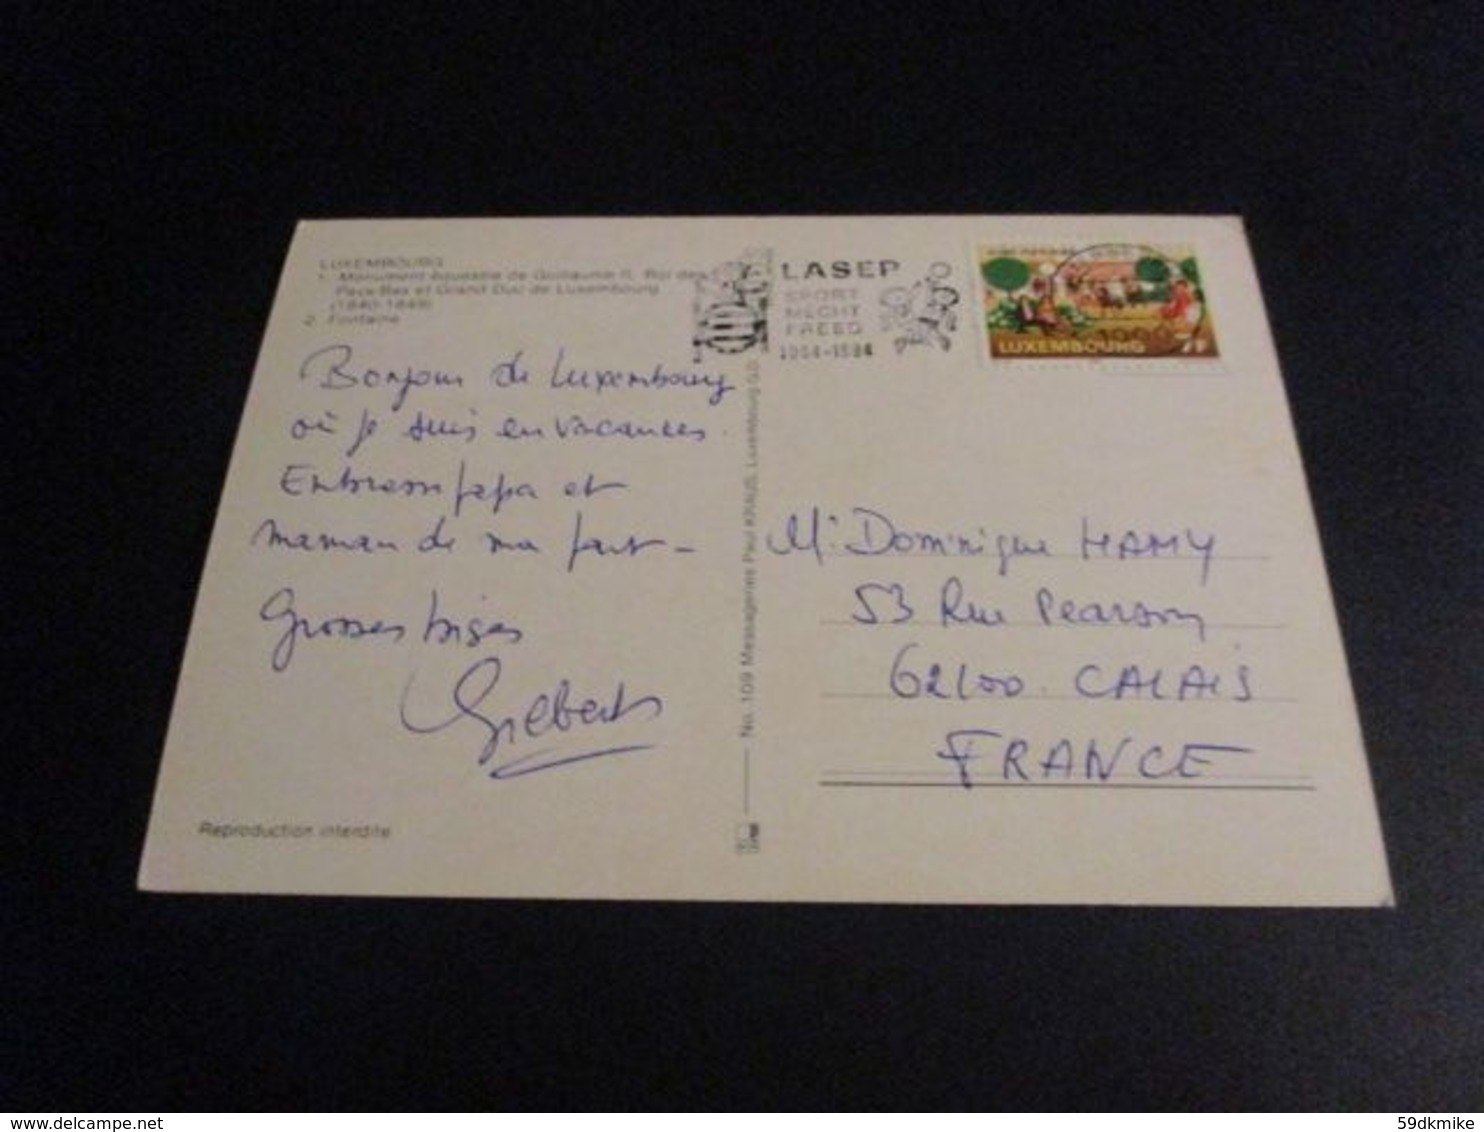 LUXEMBOURG
1. Monument équestre de Guillaume II, Roi des
Pays-Bas et Grand Duc de Luxembourg
(1840-1849)
2. Fontaine
Bonjour de Luxembourg
où je suis en vacances.
Embrasse papa et
maman de ma part -
Grosses bises
Gilbert
Reproduction interdite
No. 109 Messageries Paul KRAUS, Luxembourg G.D.
LASEP
SPORT
MECHT
FREED
1964-1984
LUXEMBOURG 7F
Mr Dominique HAMY
53 Rue Pearson
62100 CALAIS
FRANCE
59dkmike